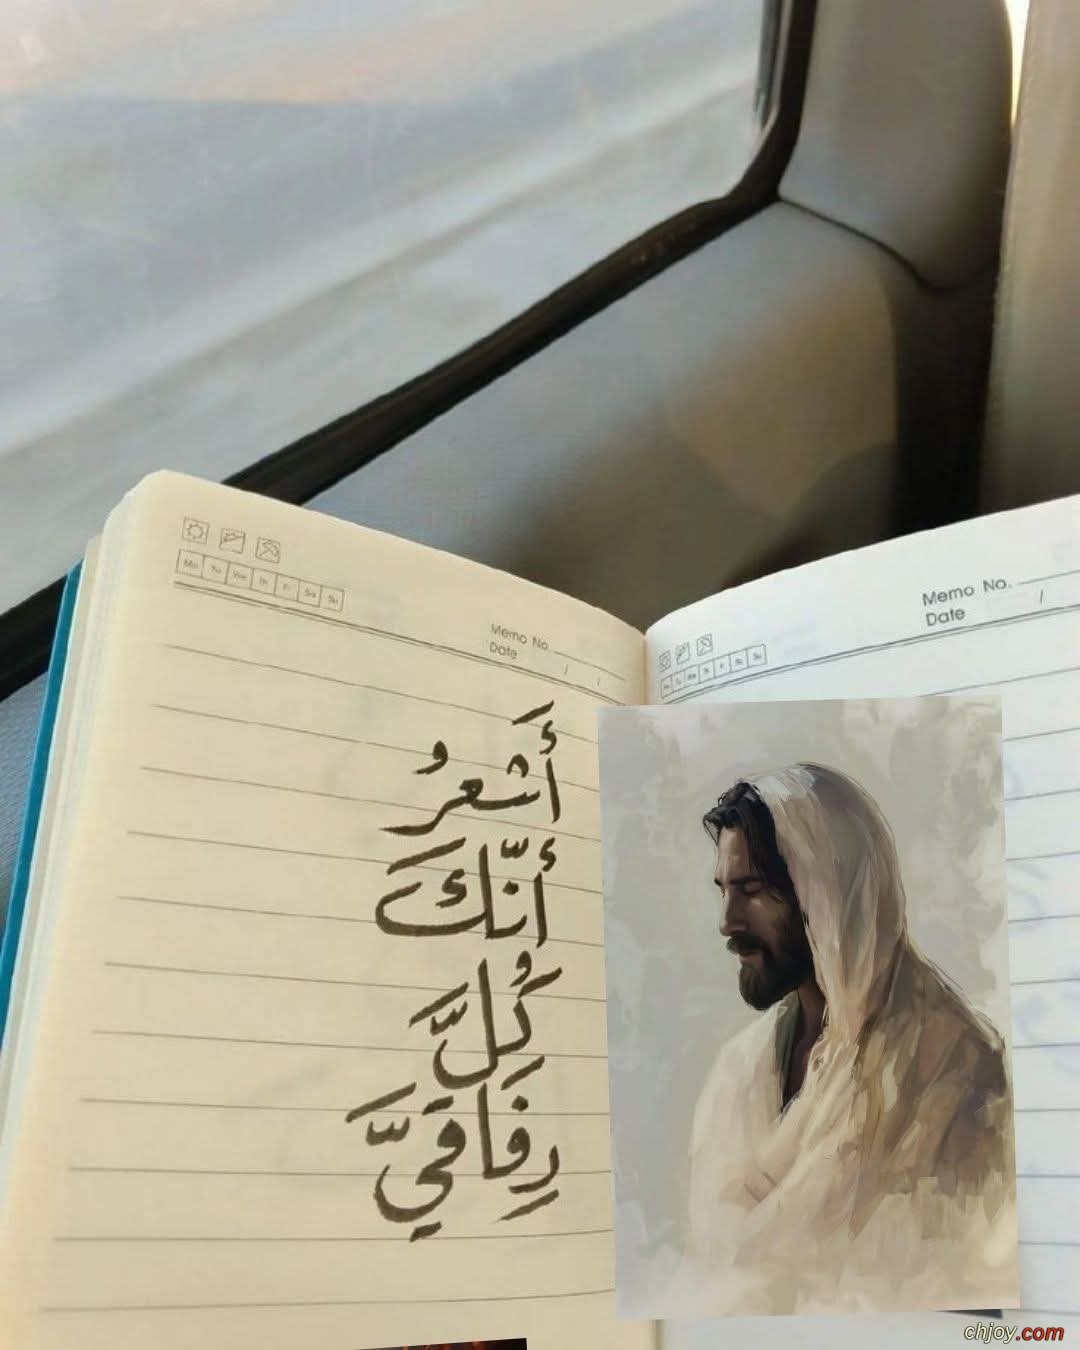 Mo Tu We Th Fr Sa Su
Memo No.
Date / /
أَشعرُ
أنّكَ
كُلَّ
رِفَاقيَّ
Memo No.
Date /
Mo Tu We Th Fr Sa Su
chjoy.com